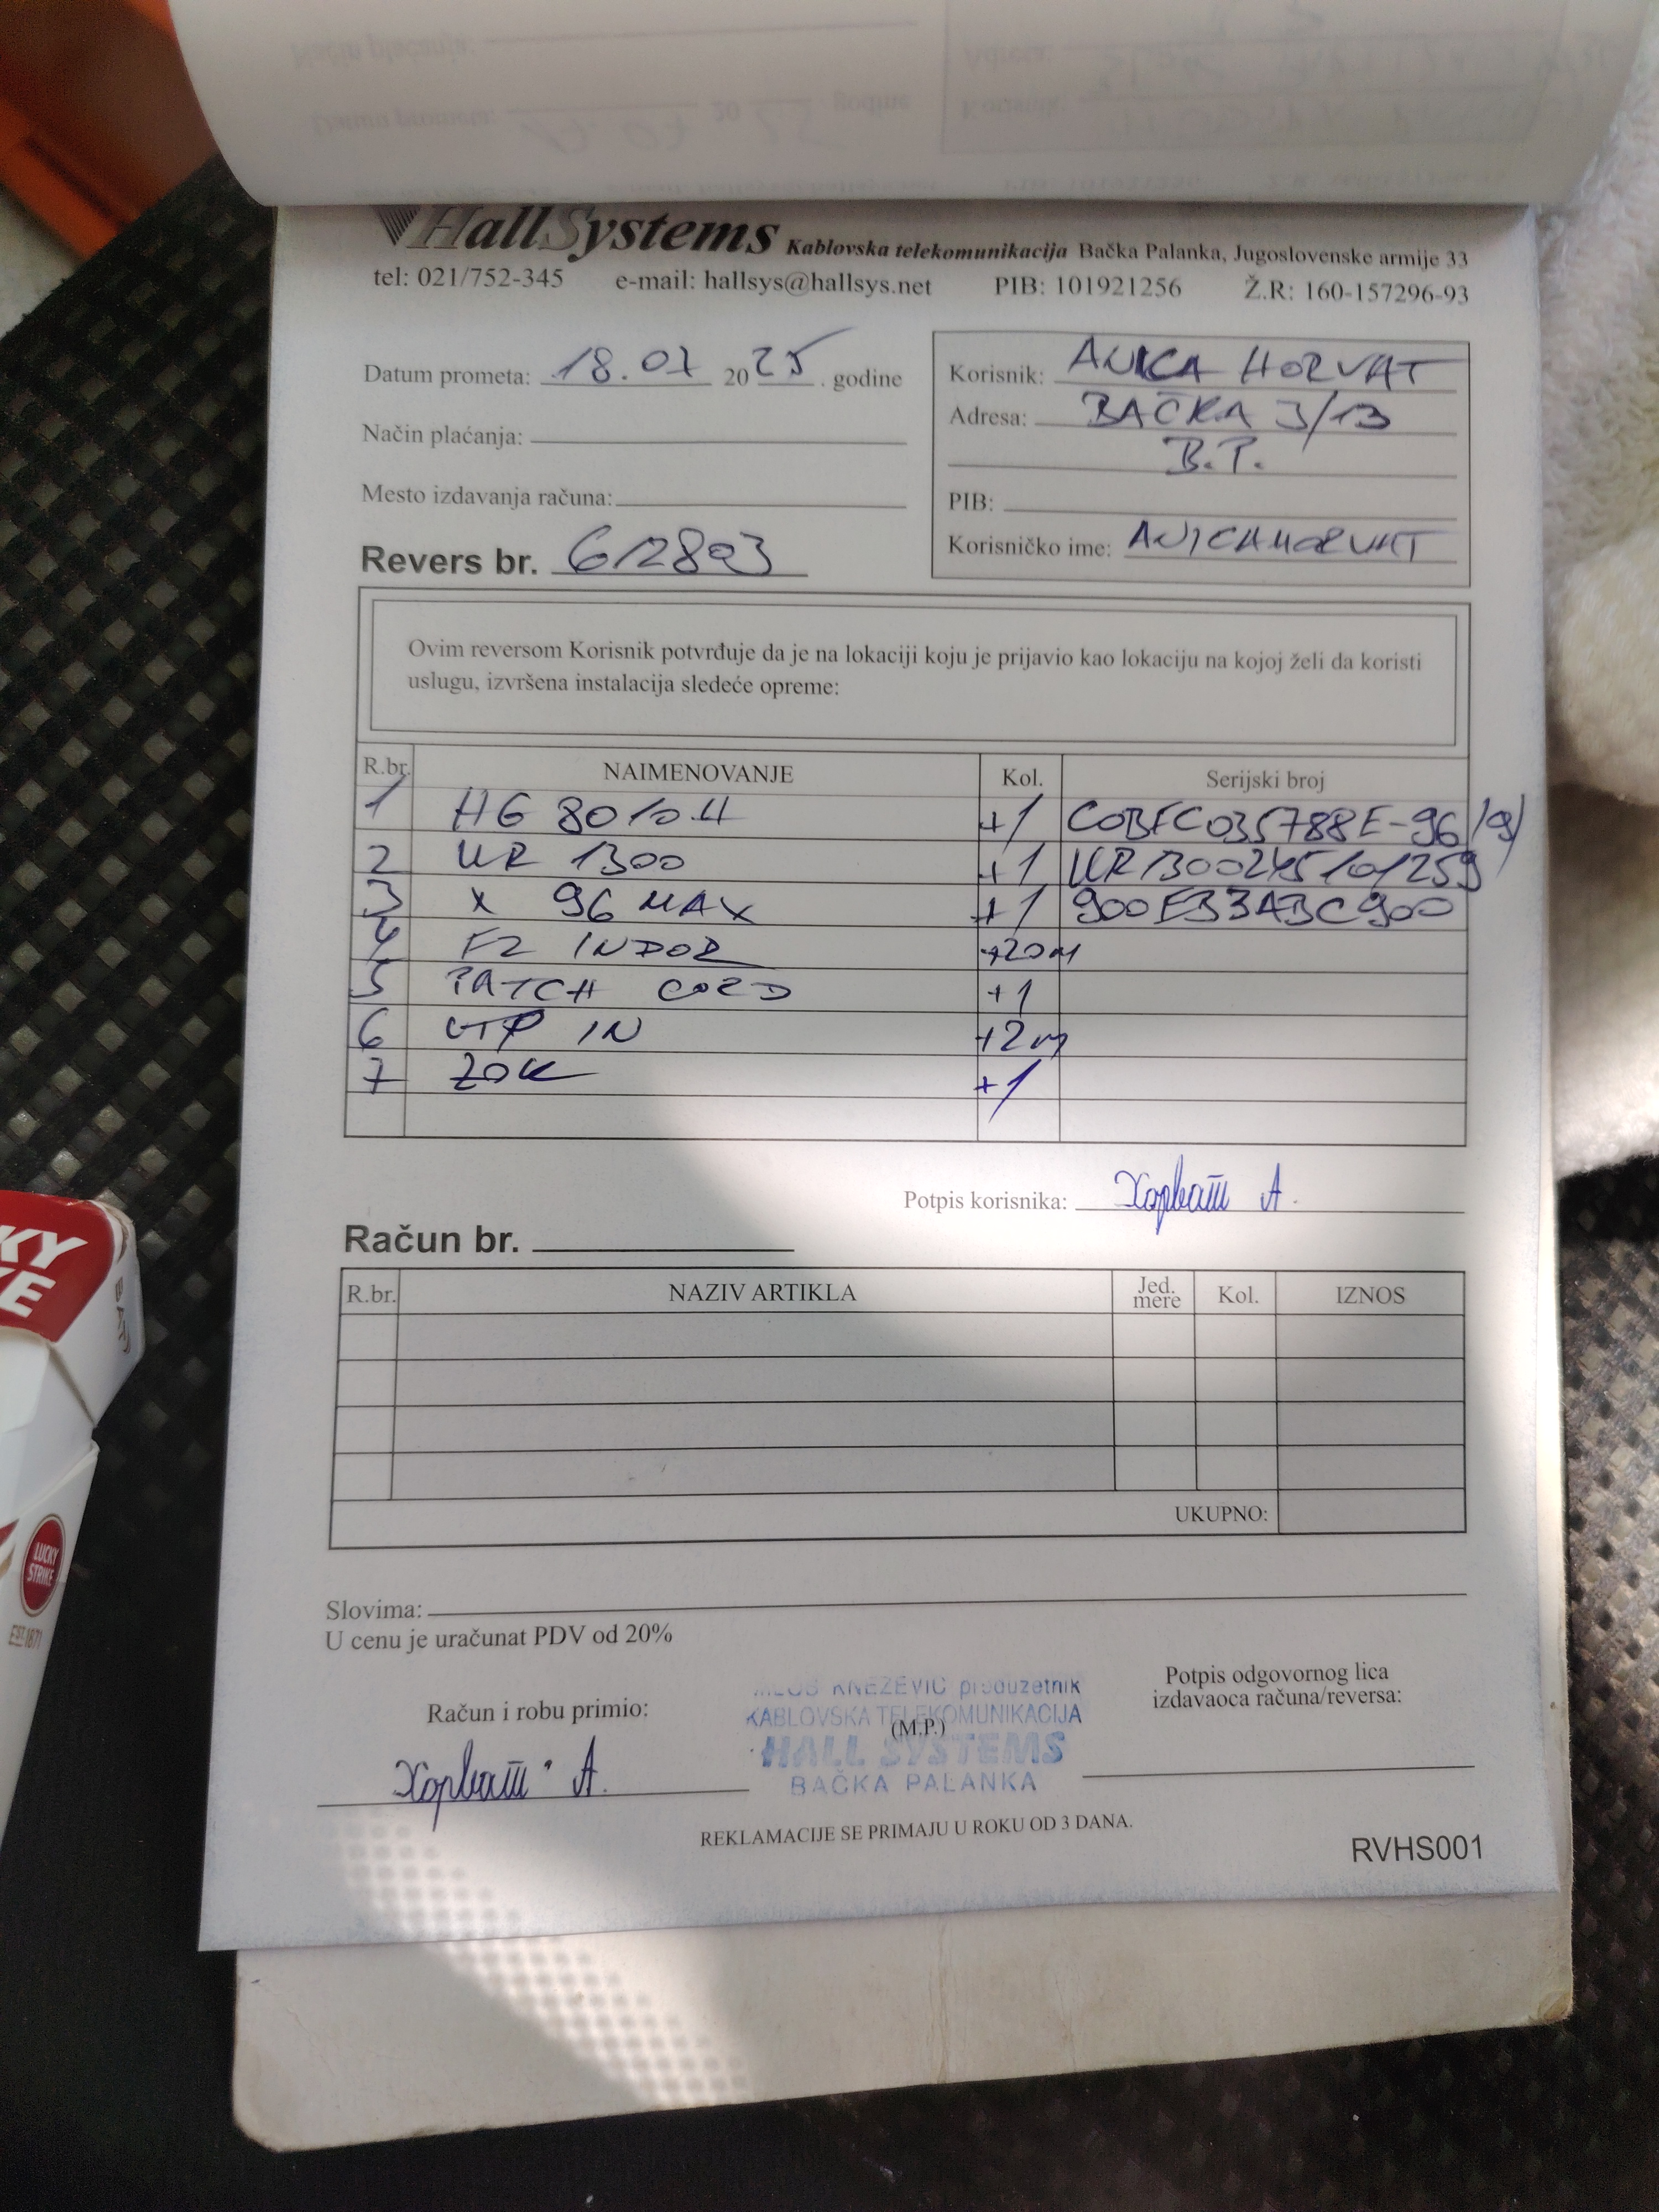 HallSystems Kablovska telekomunikacija Bačka Palanka, Jugoslovenske armije 33
tel: 021/752-345 e-mail: hallsys@hallsys.net PIB: 101921256 Ž.R: 160-157296-93
Datum prometa: 18.07 2025. godine
Način plaćanja:
Mesto izdavanja računa:
Revers br. 612803
Korisnik: ANICA HORVAT
Adresa: BAČKA 3/13
B.P.
PIB:
Korisničko ime: ANICAHORVAT
Ovim reversom Korisnik potvrđuje da je na lokaciji koju je prijavio kao lokaciju na kojoj želi da koristi
uslugu, izvršena instalacija sledeće opreme:
R.br. NAIMENOVANJE Kol. Serijski broj
1 HG 8010H +1 C0BFC035788E-96/9/
2 WR 1300 +1 WR1300245101259
3 X 96 MAX +1 900EB3ABC900
4 FZ INDOR +20m
5 PATCH CORD +1
6 UTP IN +2m
7 ZOK +1
Potpis korisnika: Хорват А.
Račun br.
R.br. NAZIV ARTIKLA Jed. mere Kol. IZNOS
UKUPNO:
Slovima:
U cenu je uračunat PDV od 20%
Račun i robu primio:
Хорват А.
KNEZEVIC preduzetnik
KABLOVSKA TELEKOMUNIKACIJA
(M.P.)
HALL SYSTEMS
BAČKA PALANKA
Potpis odgovornog lica
izdavaoca računa/reversa:
REKLAMACIJE SE PRIMAJU U ROKU OD 3 DANA.
RVHS001
KY
KE
BAT
LUCKY
STRIKE
EST. 1871